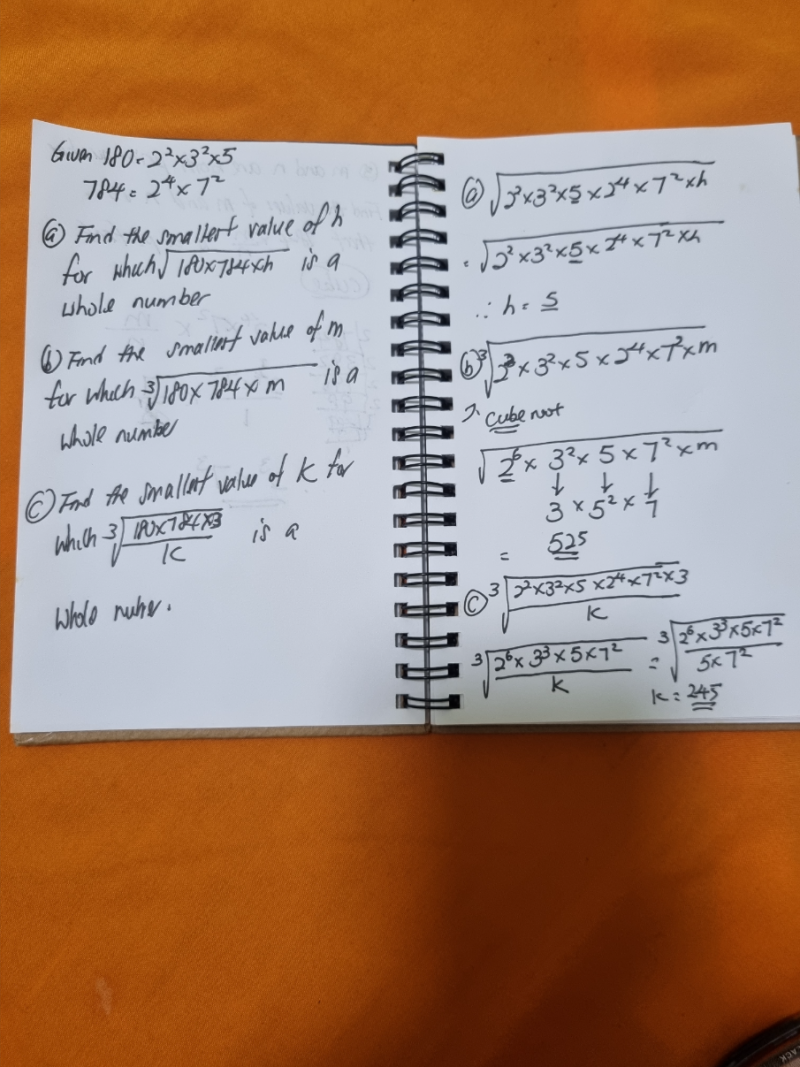 Given 180 = 2² × 3² × 5
784 = 2⁴ × 7²
(a) Find the smallest value of h
for which √(180 × 784 × h) is a
whole number
(b) Find the smallest value of m
for which ³√(180 × 784 × m) is a
whole number
(c) Find the smallest value of K for
which ³√((180 × 784 × 3)/K) is a
whole nuher.
(a) √(3² × 3² × 5 × 2⁴ × 7² × h)
= √(2² × 3² × 5 × 2⁴ × 7² × h)
∴ h = 5
(b) ³√(2² × 3² × 5 × 2⁴ × 7² × m)
cube root
√(2⁶ × 3² × 5 × 7² × m)
↓ ↓ ↓
3 × 5² × 7
= 525
(c) ³√((2² × 3² × 5 × 2⁴ × 7² × 3)/K)
³√((2⁶ × 3³ × 5 × 7²)/K) = ³√((2⁶ × 3³ × 5 × 7²)/(5 × 7²))
K = 245